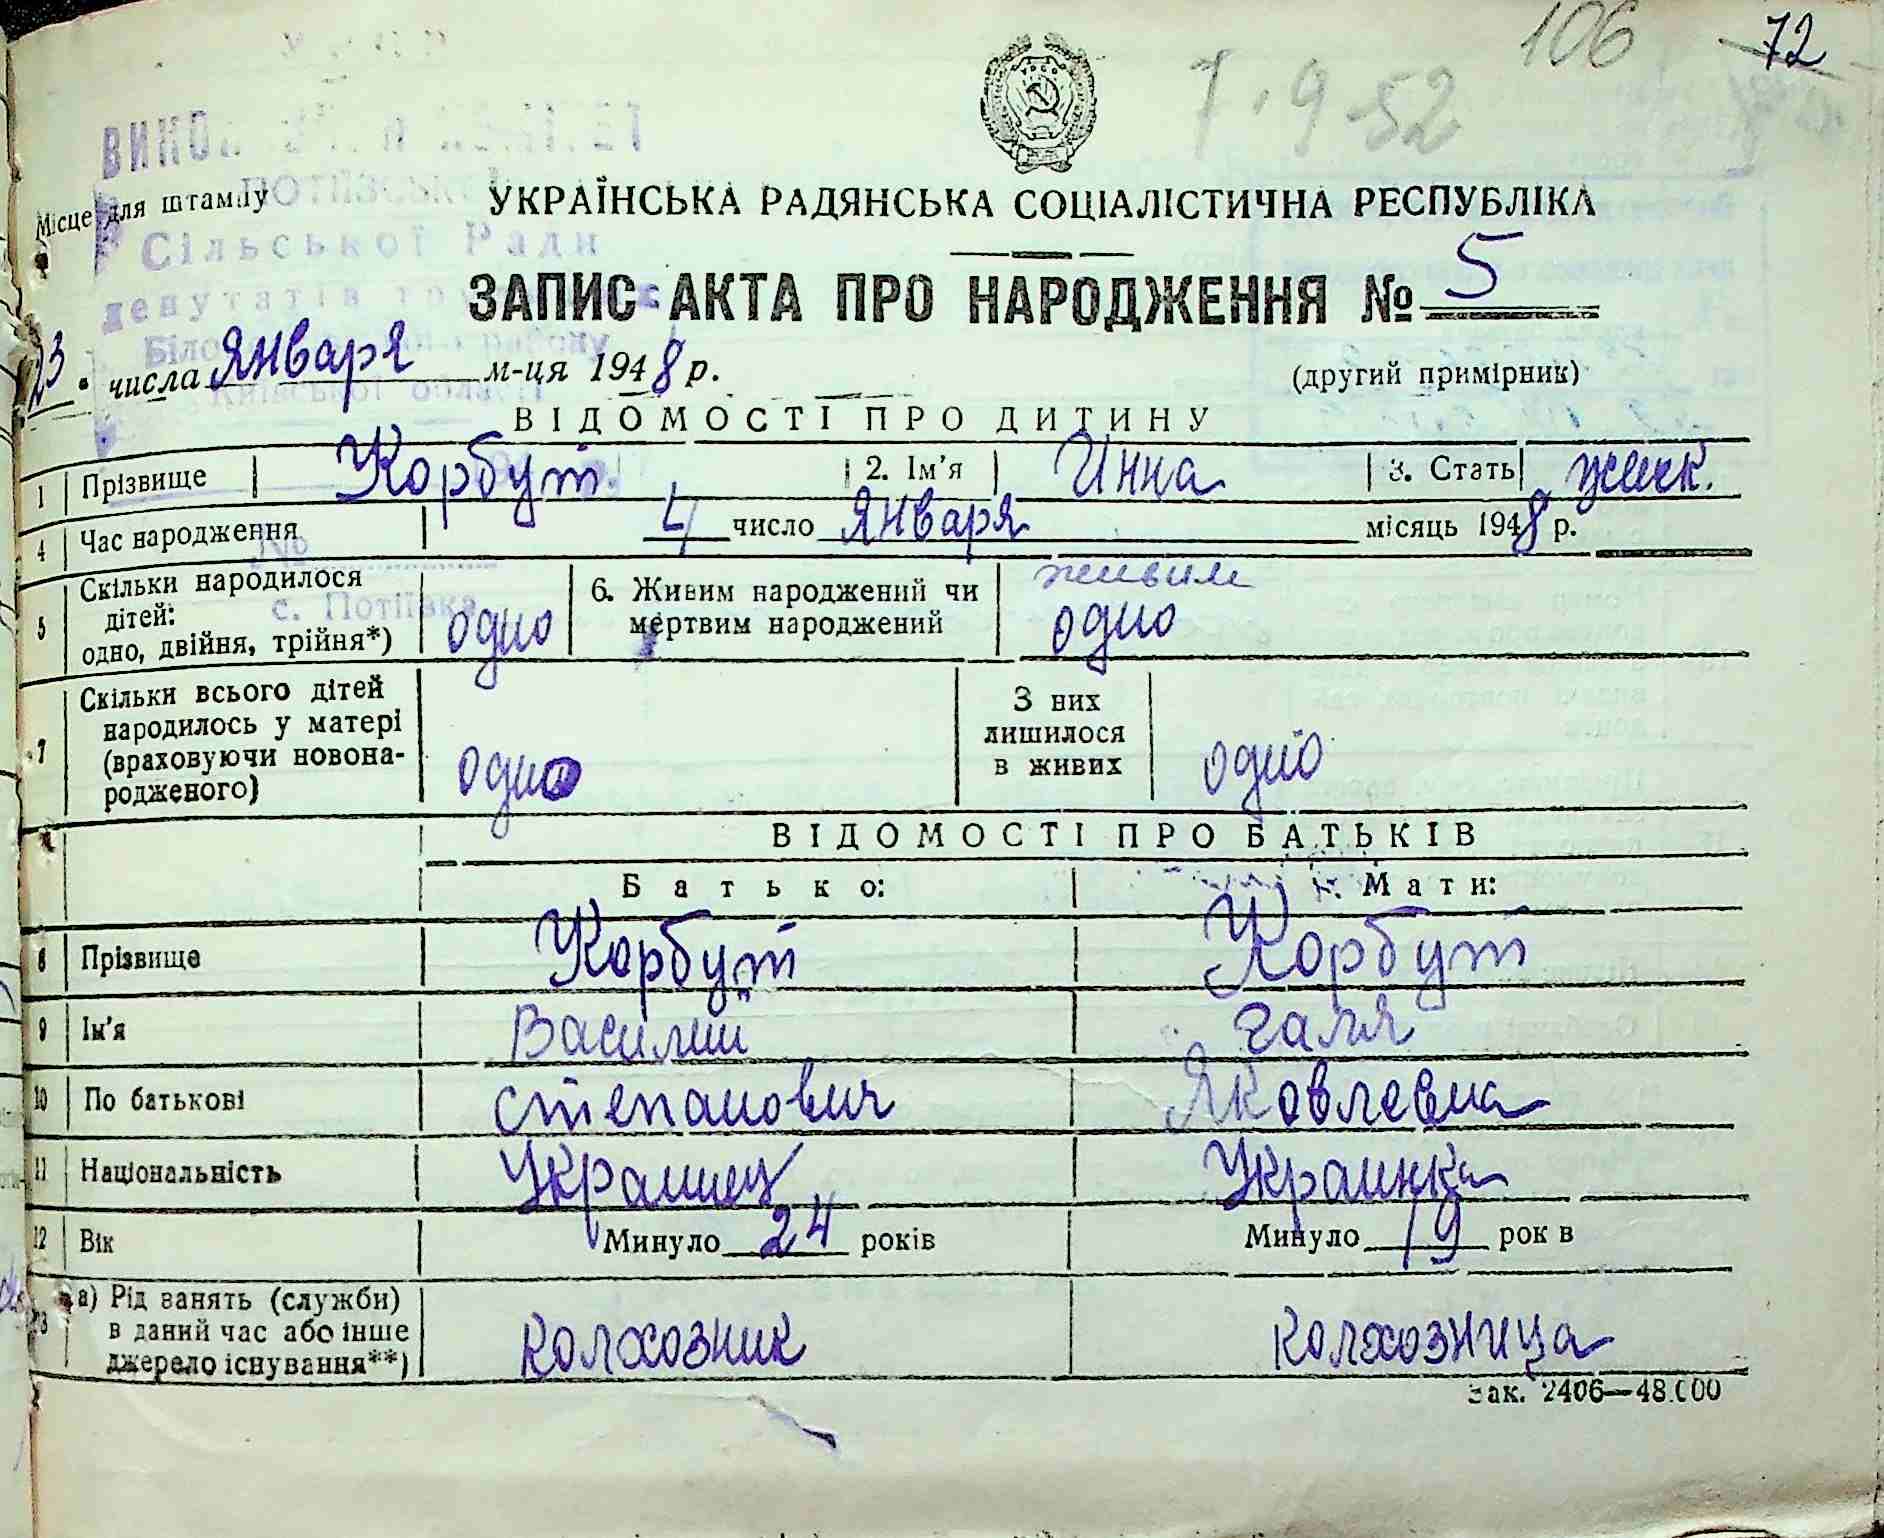 106 72
7.9-52
УРСР
ВИКОНАВЧИЙ КОМІТЕТ
ПОТІЇВСЬКОЇ
Місце для штампу
УКРАЇНСЬКА РАДЯНСЬКА СОЦІАЛІСТИЧНА РЕСПУБЛІКА
Сільської Ради
депутатів
ЗАПИС АКТА ПРО НАРОДЖЕННЯ № 5
району
23 числа января м-ця 1948 р.
(другий примірник)
Київської області
ВІДОМОСТІ ПРО ДИТИНУ
1 Прізвище Корбут 2. Ім'я Инна 3. Стать женск.
4 Час народження 4 число января місяць 1948 р.
№
с. Потіївка
5 Скільки народилося дітей: одно, двійня, трійня*) одно 6. Живим народжений чи мертвим народжений живим одно
7 Скільки всього дітей народилось у матері (враховуючи новонародженого) одно З них лишилося в живих одно
ВІДОМОСТІ ПРО БАТЬКІВ
Батько: Мати:
8 Прізвище Корбут Корбут
9 Ім'я Василий Галя
10 По батькові Степанович Яковлевна
11 Національність Украинец Украинка
12 Вік Минуло 24 років Минуло 19 рок в
13 а) Рід занять (служби) в даний час або інше джерело існування**) колхозник колхозница
Зак. 2406—48.000